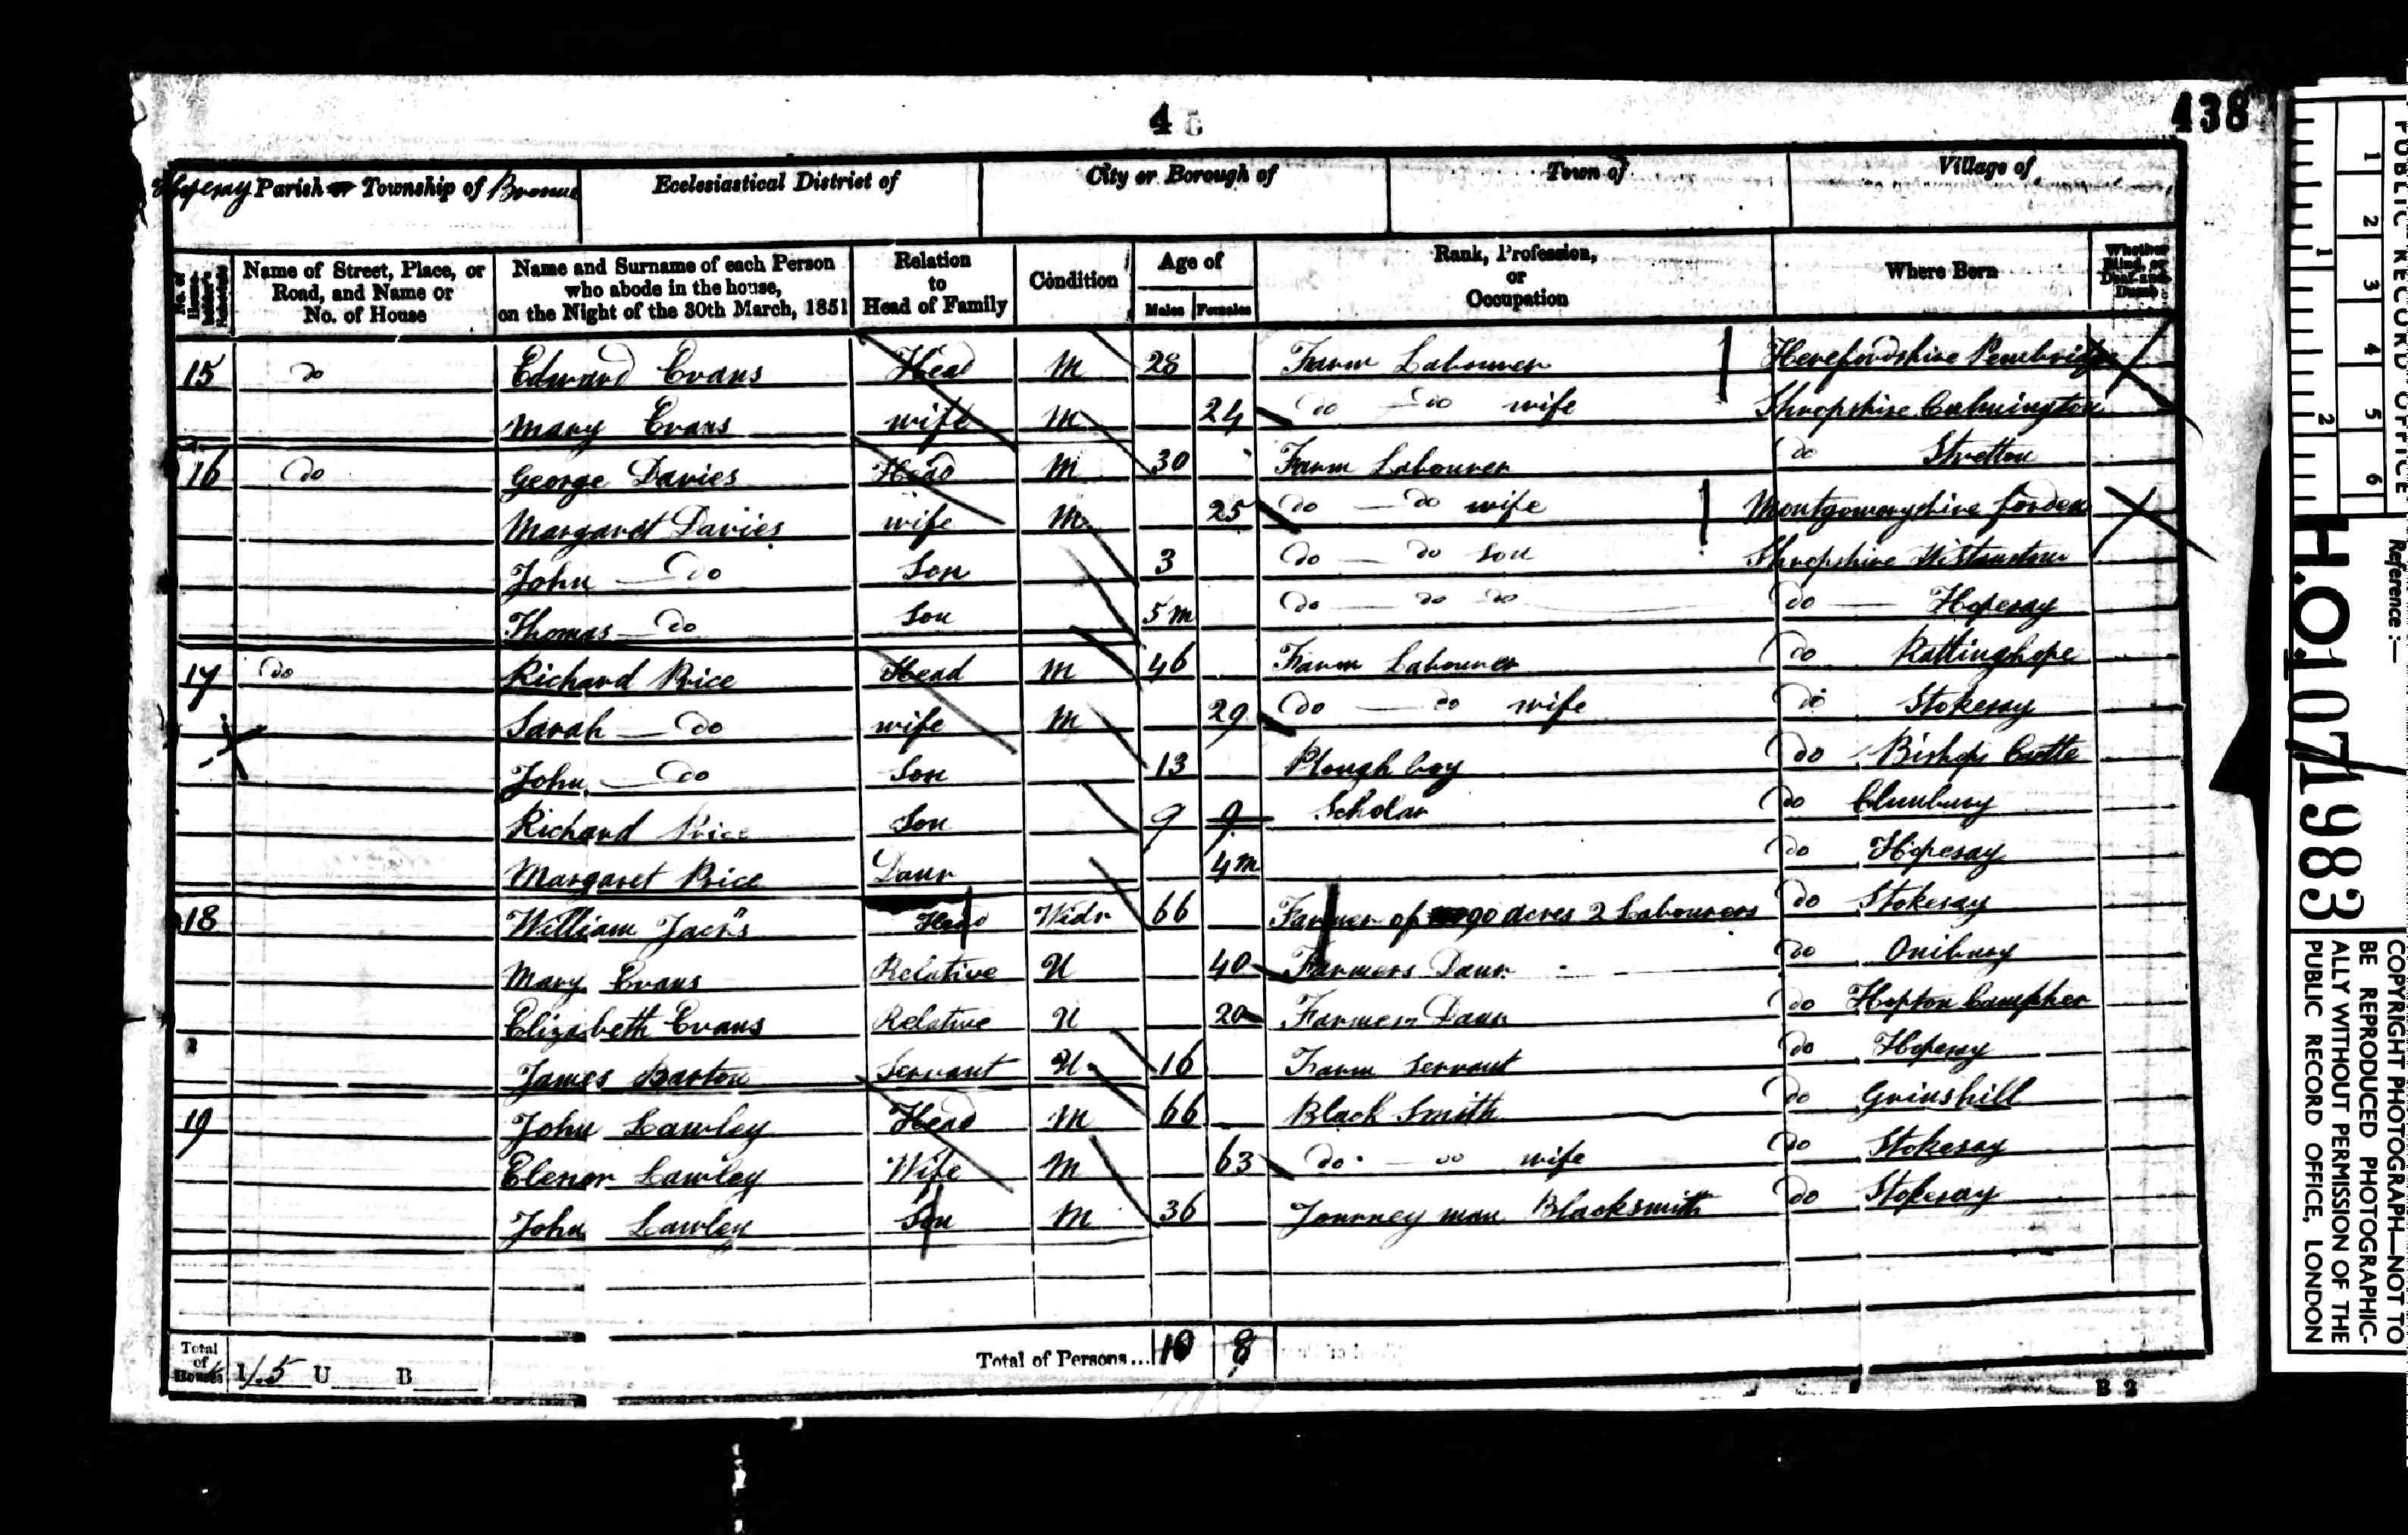 4 5
438
Hopesay Parish or Township of Broome
Ecclesiastical District of
City or Borough of
Town of
Village of
No. of House-holder's Schedule
Name of Street, Place, or Road, and Name or No. of House
Name and Surname of each Person who abode in the house, on the Night of the 30th March, 1851
Relation to Head of Family
Condition
Age of
Males
Females
Rank, Profession, or Occupation
Where Born
Whether Blind, or Deaf-and-Dumb
15 do Edward Evans Head M 28 Farm Labourer Herefordshire Pembridge
Mary Evans wife M 24 do do wife Shropshire Culmington
16 do George Davies Head M 30 Farm Labourer do Stretton
Margaret Davies wife M 25 do do wife Montgomeryshire Forden
John do Son 3 do do son Shropshire Wistanstow
Thomas do Son 5 m do do do do Hopesay
17 do Richard Price Head M 46 Farm Labourer do Rattinghope
Sarah do wife M 29 do do wife do Stokesay
John do Son 13 Plough boy do Bishops Castle
Richard Price Son 9 9 Scholar do Clunbury
Margaret Price Daur 4m do Hopesay
18 William Jacks Head Widr 66 Farmer of 90 acres 2 Labourers do Stokesay
Mary Evans Relative U 40 Farmers Daur do Onibury
Elizabeth Evans Relative U 20 Farmers Daur do Hopton
James Barton Servant U 16 Farm Servant do Hopesay
19 John Lawley Head M 66 Black Smith do Grinshill
Elenor Lawley Wife M 63 do do wife do Stokesay
John Lawley Son M 36 Journey man Blacksmith do Stokesay
Total of Houses I 5 U B
Total of Persons... 10 8
B 2
PUBLIC RECORD OFFICE
1 2 3 4 5 6
1 2
Reference:—
H.O. 107 / 1983
COPYRIGHT PHOTOGRAPH—NOT TO
BE REPRODUCED PHOTOGRAPHIC-
ALLY WITHOUT PERMISSION OF THE
PUBLIC RECORD OFFICE, LONDON